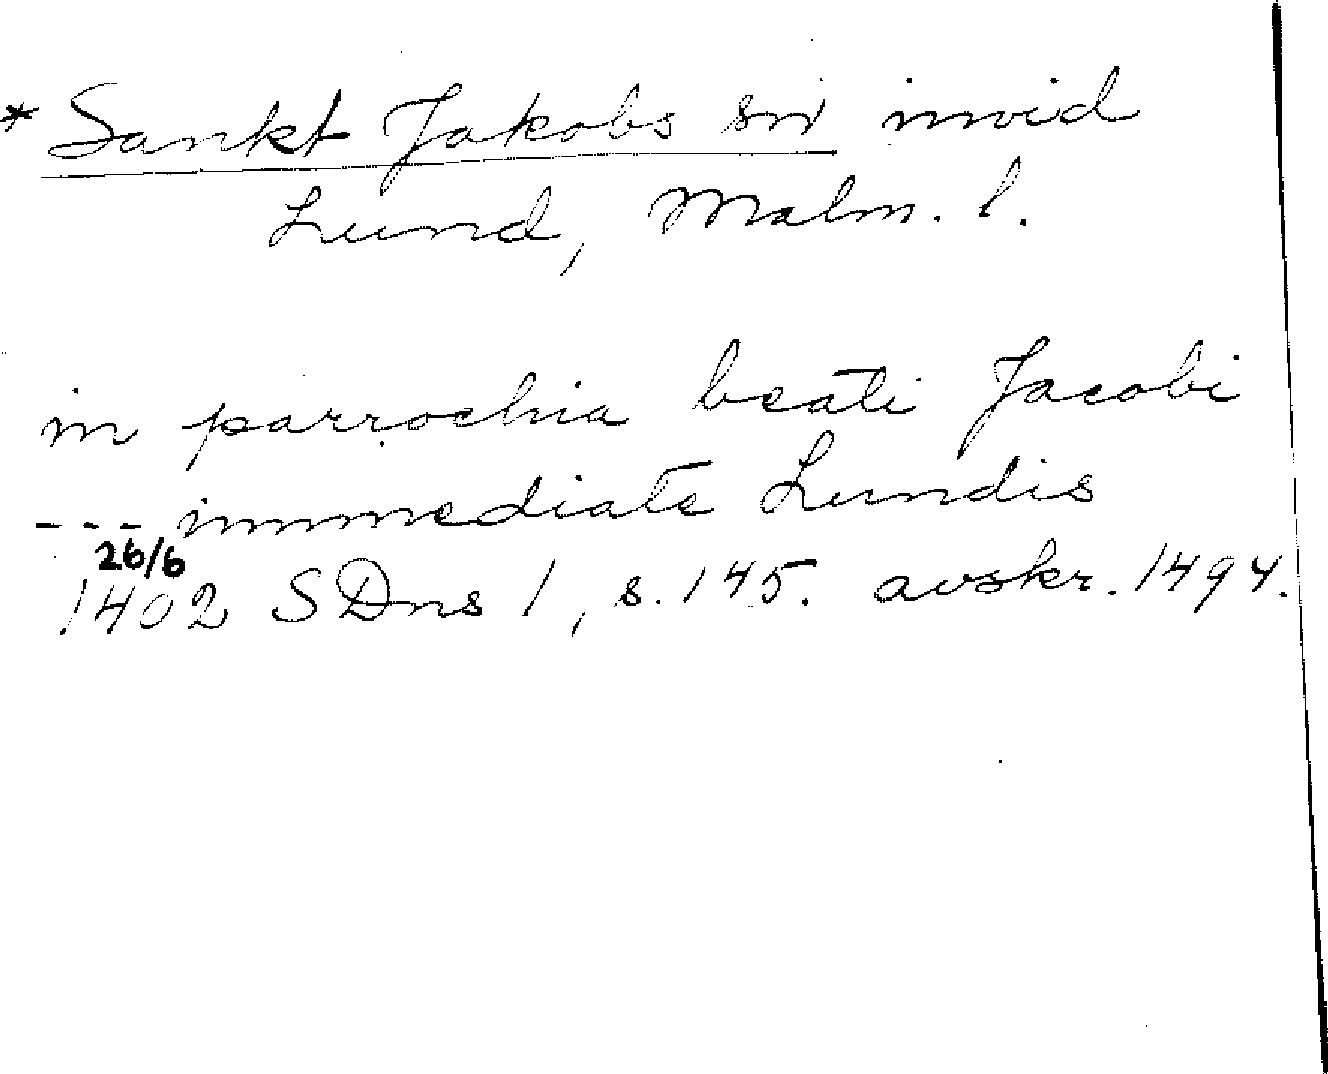 * Sankt Jakobs sn invid
Lund, Malm. l.
in parrochia beati Jacobi
--- immediate Lundis
26/6
1402 SDns 1, s. 145. avskr. 1494.